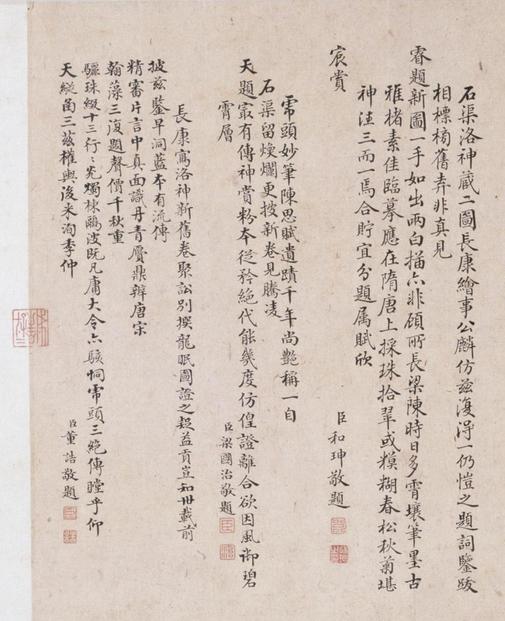 石渠洛神藏二圖長康繪事公麟仿茲復得一仍愷之題詞鑒跋
相標榜舊弆非真見
睿題新圖一手如出兩白描亦非顧所長梁陳時日多霄壤筆墨古
雅楮素佳臨摹應在隋唐上採珠拾翠或糢糊春松秋菊堪
神注三而一焉合貯宜分題属賦欣
宸賞
臣和珅敬題
虎頭妙筆陳思賦遺蹟千年尚艷稱一自
石渠留煥爛更披新卷見騰凌
天題㝡有傳神賞粉本從矜絕代能幾度仿偟證離合欲因風御碧
霄層
臣梁國治敬題
長康寫洛神新舊卷聚訟別撰龍眠圖證之疑益貢豈知卅載前
披茲鑒早洞藍本有流傳
精審片言中真面識丹青贗鼎辨唐宋
翰藻三復題聲價千秋重
驪珠綴十三行〻光燭棟鷗波既凡庸大令亦駭恫虎頭三絕傳瞠乎仰
天縱函三茲權輿後來洵季仲
臣董誥敬題